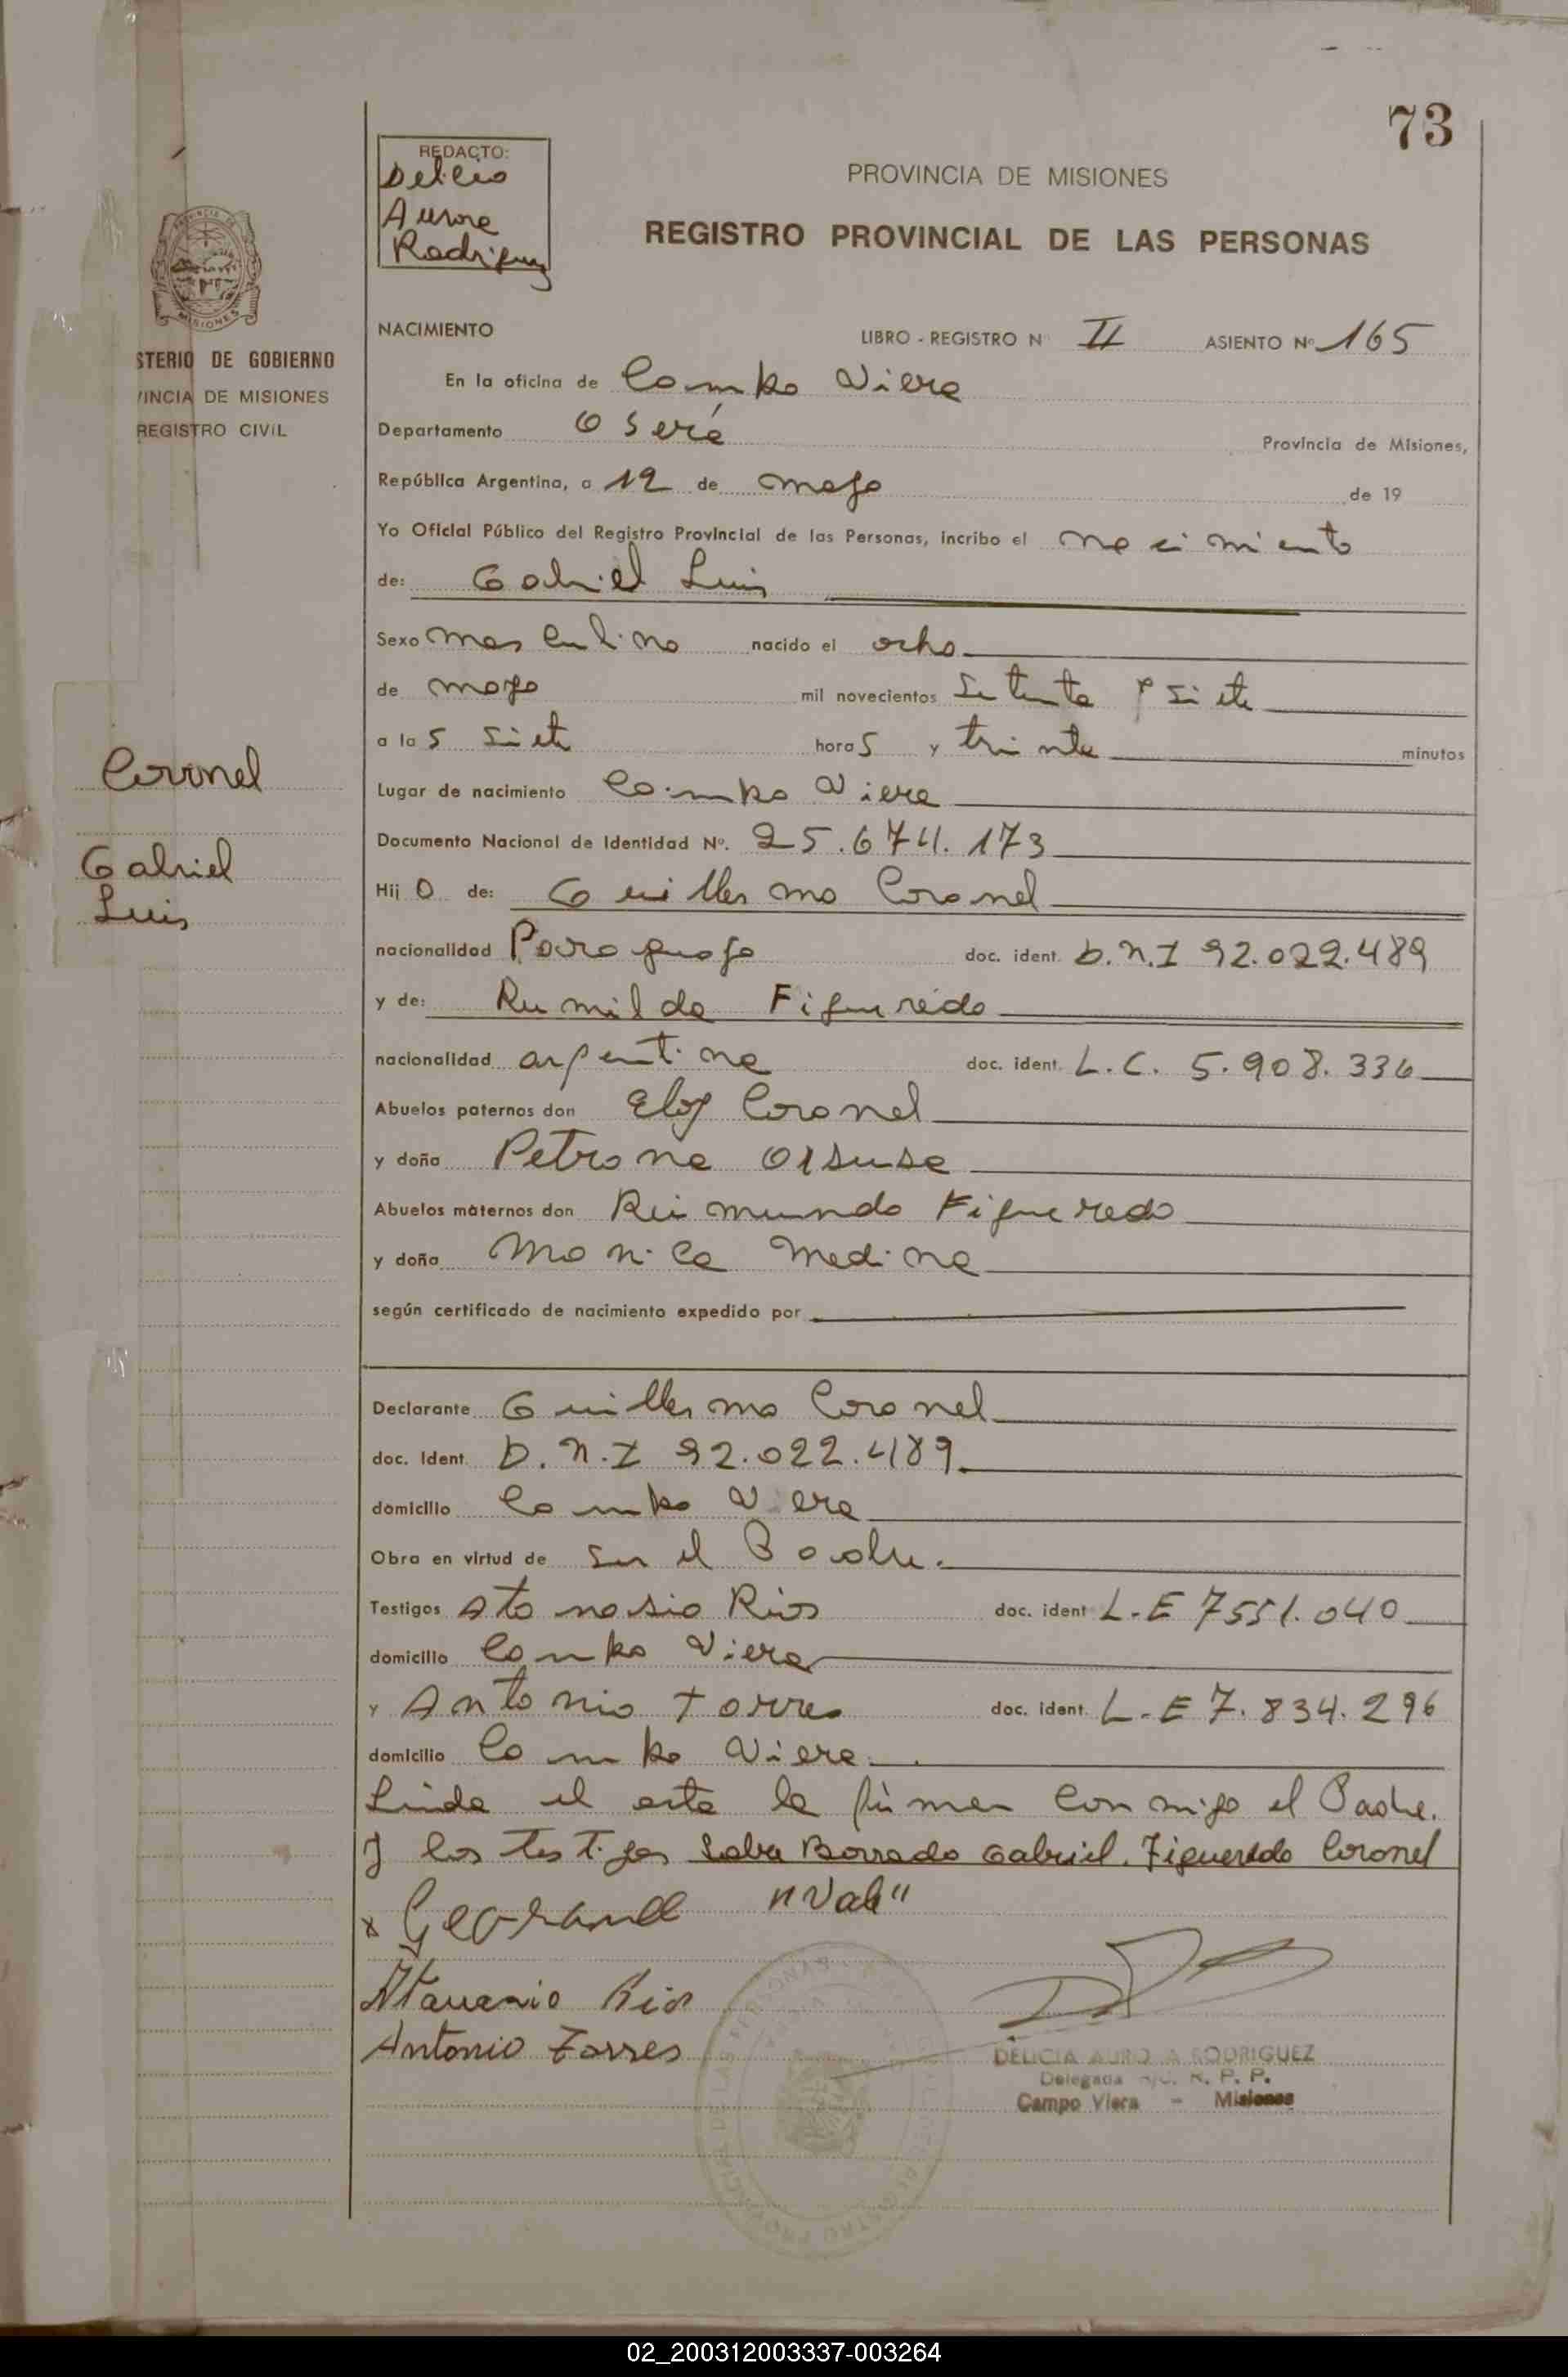 73
REDACTO:
Delicia
Aurora
Rodriguez
PROVINCIA DE MISIONES
REGISTRO PROVINCIAL DE LAS PERSONAS
MISIONES
STERIO DE GOBIERNO
VINCIA DE MISIONES
REGISTRO CIVIL
NACIMIENTO LIBRO - REGISTRO Nº II ASIENTO Nº 165
En la oficina de Campo Viera
Departamento Oberá Provincia de Misiones,
República Argentina, a 12 de mayo de 19
Yo Oficial Público del Registro Provincial de las Personas, incribo el nacimiento
de: Gabriel Luis
Sexo masculino nacido el ocho
de mayo mil novecientos setenta y siete
a las siete horas y treinta minutos
Lugar de nacimiento Campo Viera
Documento Nacional de Identidad Nº. 25.674.173
Coronel
Gabriel
Luis
Hijo de: Guillermo Coronel
nacionalidad Paraguayo doc. ident. D.N.I 92.022.489
y de: Rumilda Figueredo
nacionalidad argentina doc. ident. L.C. 5.908.336
Abuelos paternos don Eloy Coronel
y doña Petrona
Abuelos maternos don Reimundo Figueredo
y doña Monica Medina
según certificado de nacimiento expedido por
Declarante Guillermo Coronel
doc. Ident. D.N.I 92.022.489
domicilio Campo Viera
Obra en virtud de ser el Padre.
Testigos Atanasio Rios doc. ident L.E 7551.040
domicilio Campo Viera
y Antonio Torres doc. ident. L.E 7.834.296
domicilio Campo Viera
Leida el acta la firman conmigo el Padre.
y los testigos Sobre Borrado Gabriel. Figueredo Coronel
"Vale"
Antonio Torres
DELICIA AURORA RODRIGUEZ
Delegada R. P. P.
Campo Viera - Misiones
02_200312003337-003264